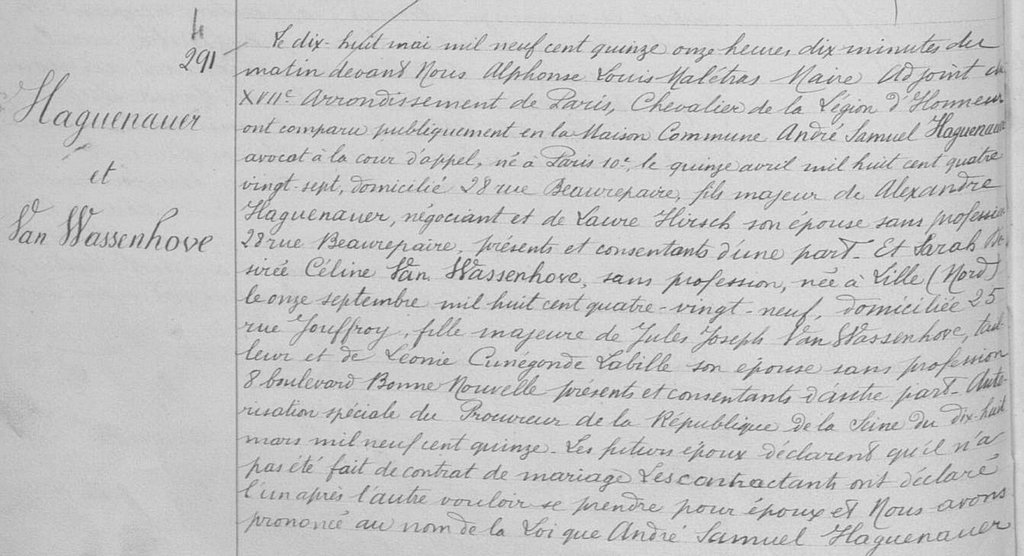 4
291
Haguenauer
et
Van Wassenhove
Le dix-huit mai mil neuf cent quinze onze heures dix minutes du
matin devant Nous Alphonse Louis Malétras Maire Adjoint du
XVIIe Arrondissement de Paris, Chevalier de la Légion d'Honneur
ont comparu publiquement en la Maison Commune André Samuel Haguenauer
avocat à la cour d'appel, né à Paris 10e, le quinze avril mil huit cent quatre
vingt sept, domicilié 28 rue Beaurepaire, fils majeur de Alexandre
Haguenauer, négociant et de Laure Hirsch son épouse sans profession
28 rue Beaurepaire, présents et consentants d'une part. Et Sarah Dé
sirée Céline Van Wassenhove, sans profession, née à Lille (Nord)
le onze septembre mil huit cent quatre-vingt-neuf, domiciliée 25
rue Jouffroy, fille majeure de Jules Joseph Van Wassenhove, tail
leur et de Léonie Cunégonde Labille son épouse sans profession
8 boulevard Bonne Nouvelle présents et consentants d'autre part. Auto
risation spéciale du Procureur de la République de la Seine du dix-huit
mars mil neuf cent quinze. Les futurs époux déclarent qu'il n'a
pas été fait de contrat de mariage Les contractants ont déclaré
l'un après l'autre vouloir se prendre pour époux et Nous avons
prononcé au nom de la Loi que André Samuel Haguenauer